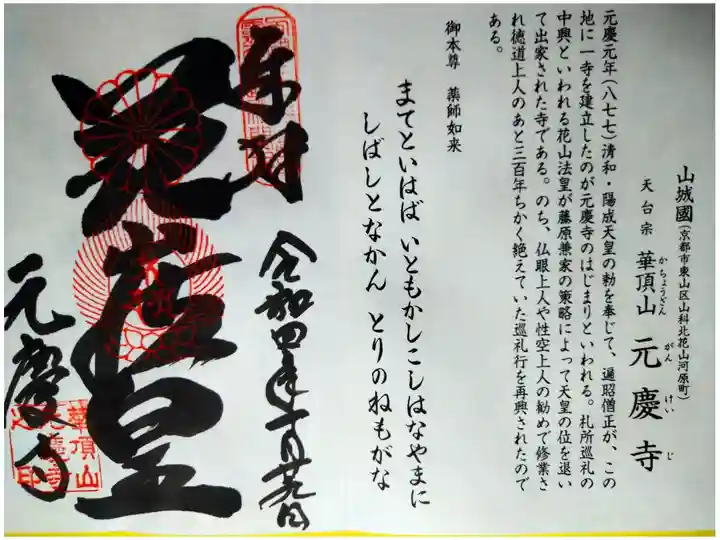 山城國(京都市東山区山科北花山河原町)
天台宗 華頂山 元慶寺
かちょうざん がんけいじ
元慶元年(八七七)清和・陽成天皇の勅を奉じて、遍昭僧正が、この
地に一寺を建立したのが元慶寺のはじまりといわれる。札所巡礼の
中興といわれる花山法皇が藤原兼家の策略によって天皇の位を退い
て出家された寺である。のち、仏眼上人や性空上人の勧めで修業さ
れ徳道上人のあと三百年ちかく絶えていた巡礼行を再興されたので
ある。
御本尊 薬師如来
まてといはば いともかしこしはなやまに
しばしとなかん とりのねもがな
奉拝
令和四年十月廿九日
元慶寺
華頂山
元慶寺
之印